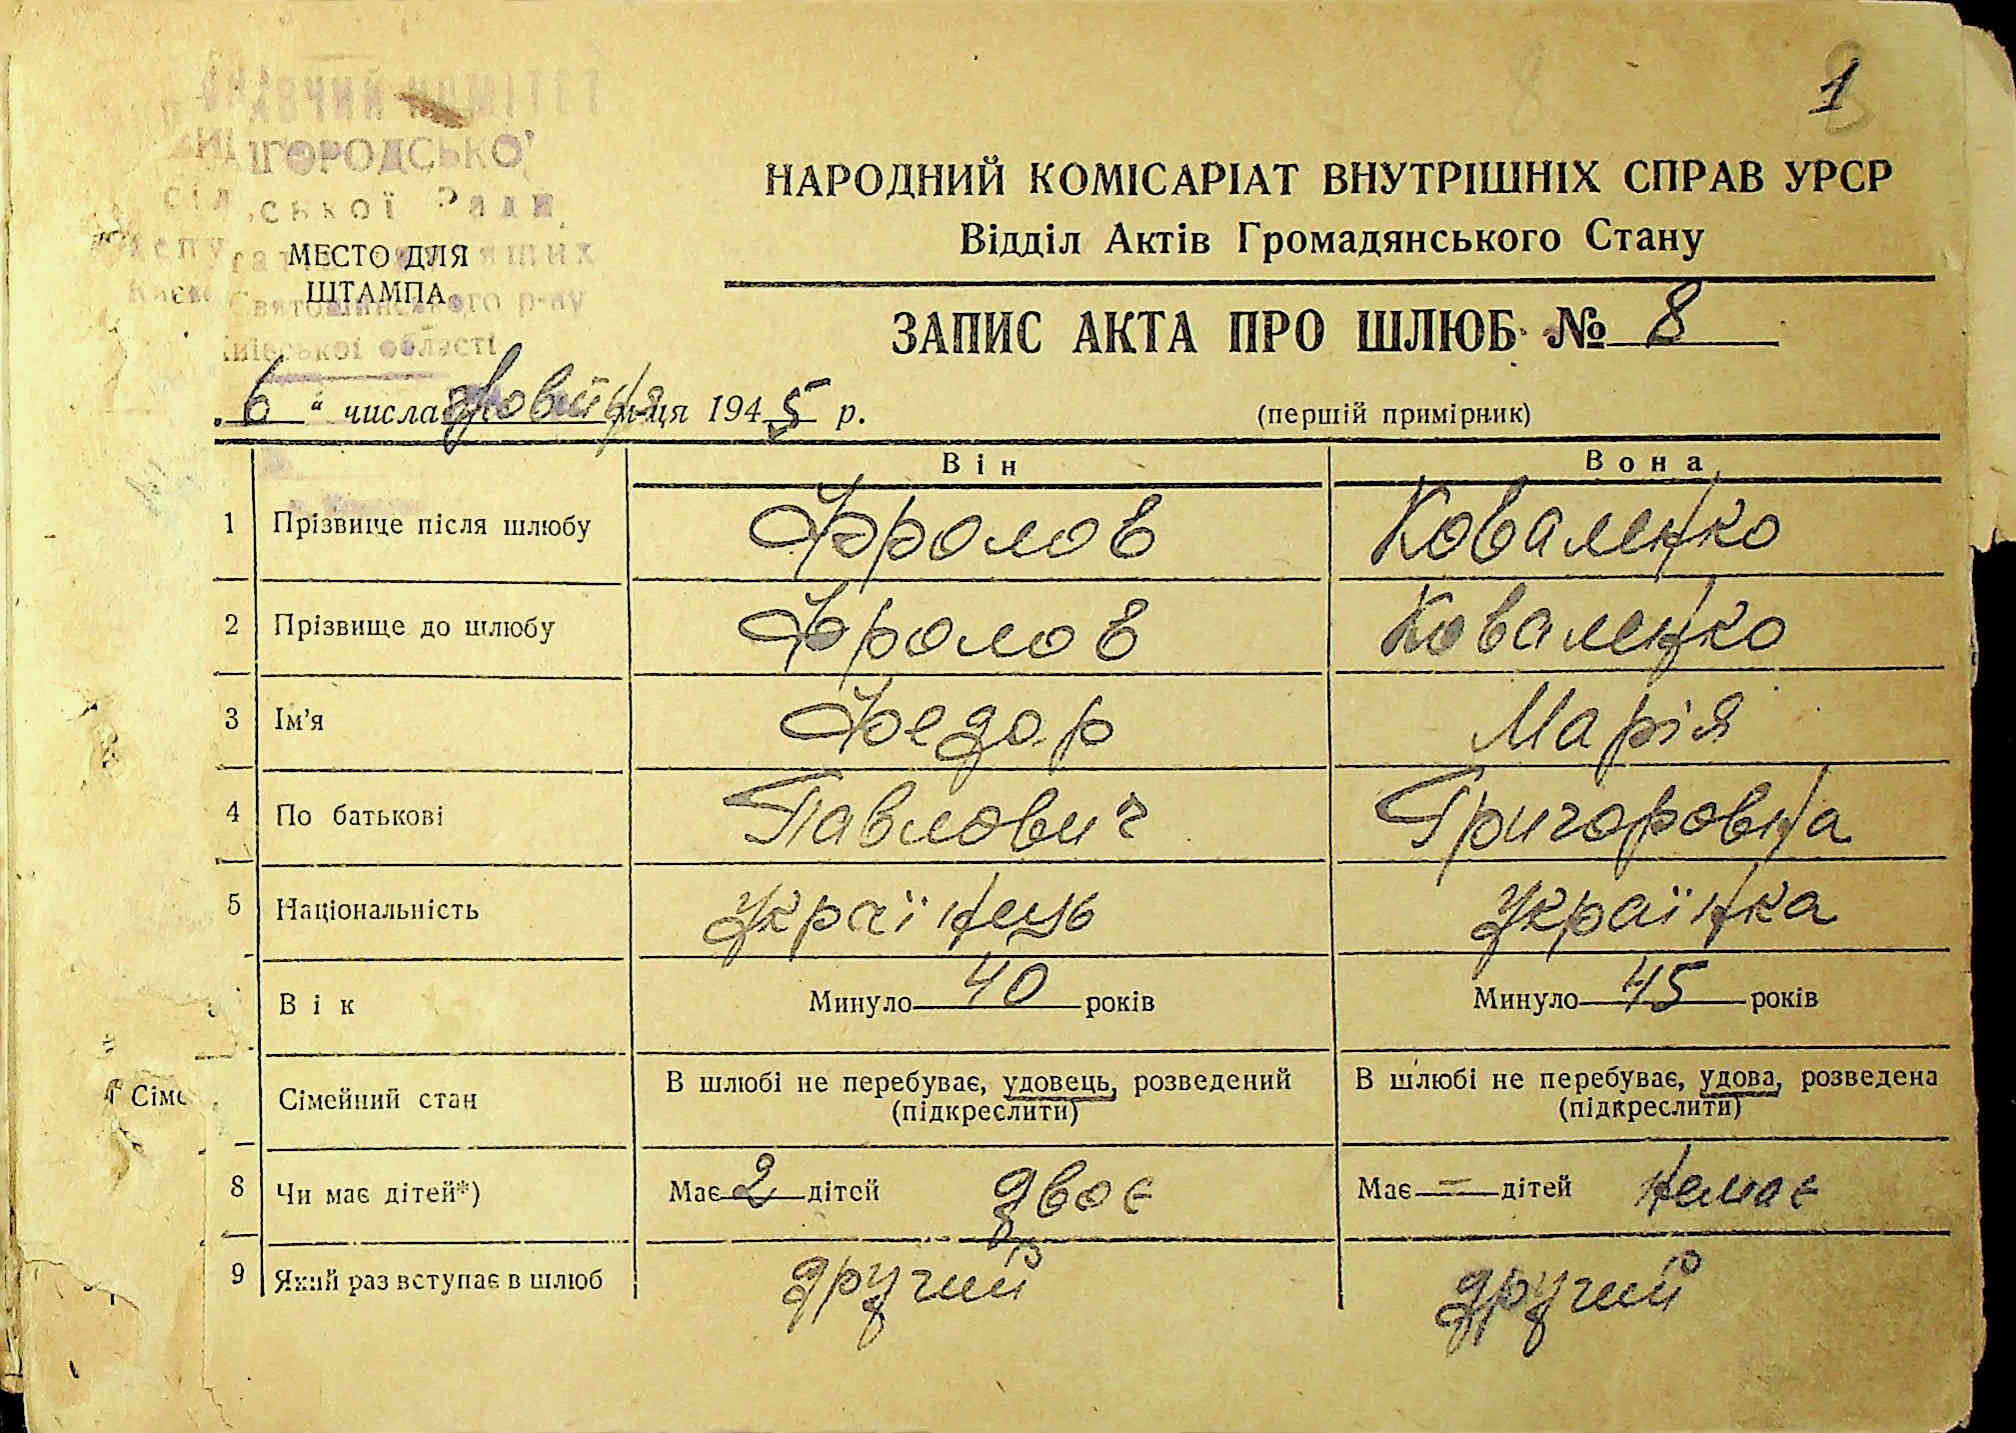 1
ГОРОДСЬКОЇ
сільської Ради
МЕСТО ДЛЯ
ШТАМПА
Святошинського р-ну
Київської області
НАРОДНИЙ КОМІСАРІАТ ВНУТРІШНІХ СПРАВ УРСР
Відділ Актів Громадянського Стану
ЗАПИС АКТА ПРО ШЛЮБ № 8
„6“ числа жовтня м-ця 1945 р.
(першій примірник)
Він Вона
1 Прізвище після шлюбу Фролов Коваленко
2 Прізвище до шлюбу Фролов Коваленко
3 Ім'я Федор Марія
4 По батькові Павлович Григоровна
5 Національність Українець Українка
Вік Минуло 40 років Минуло 45 років
Сіме Сімейний стан В шлюбі не перебуває, удовець, розведений В шлюбі не перебуває, удова, розведена
(підкреслити) (підкреслити)
8 Чи має дітей*) Має 2 дітей двоє Має — дітей немає
9 Який раз вступає в шлюб другий другий